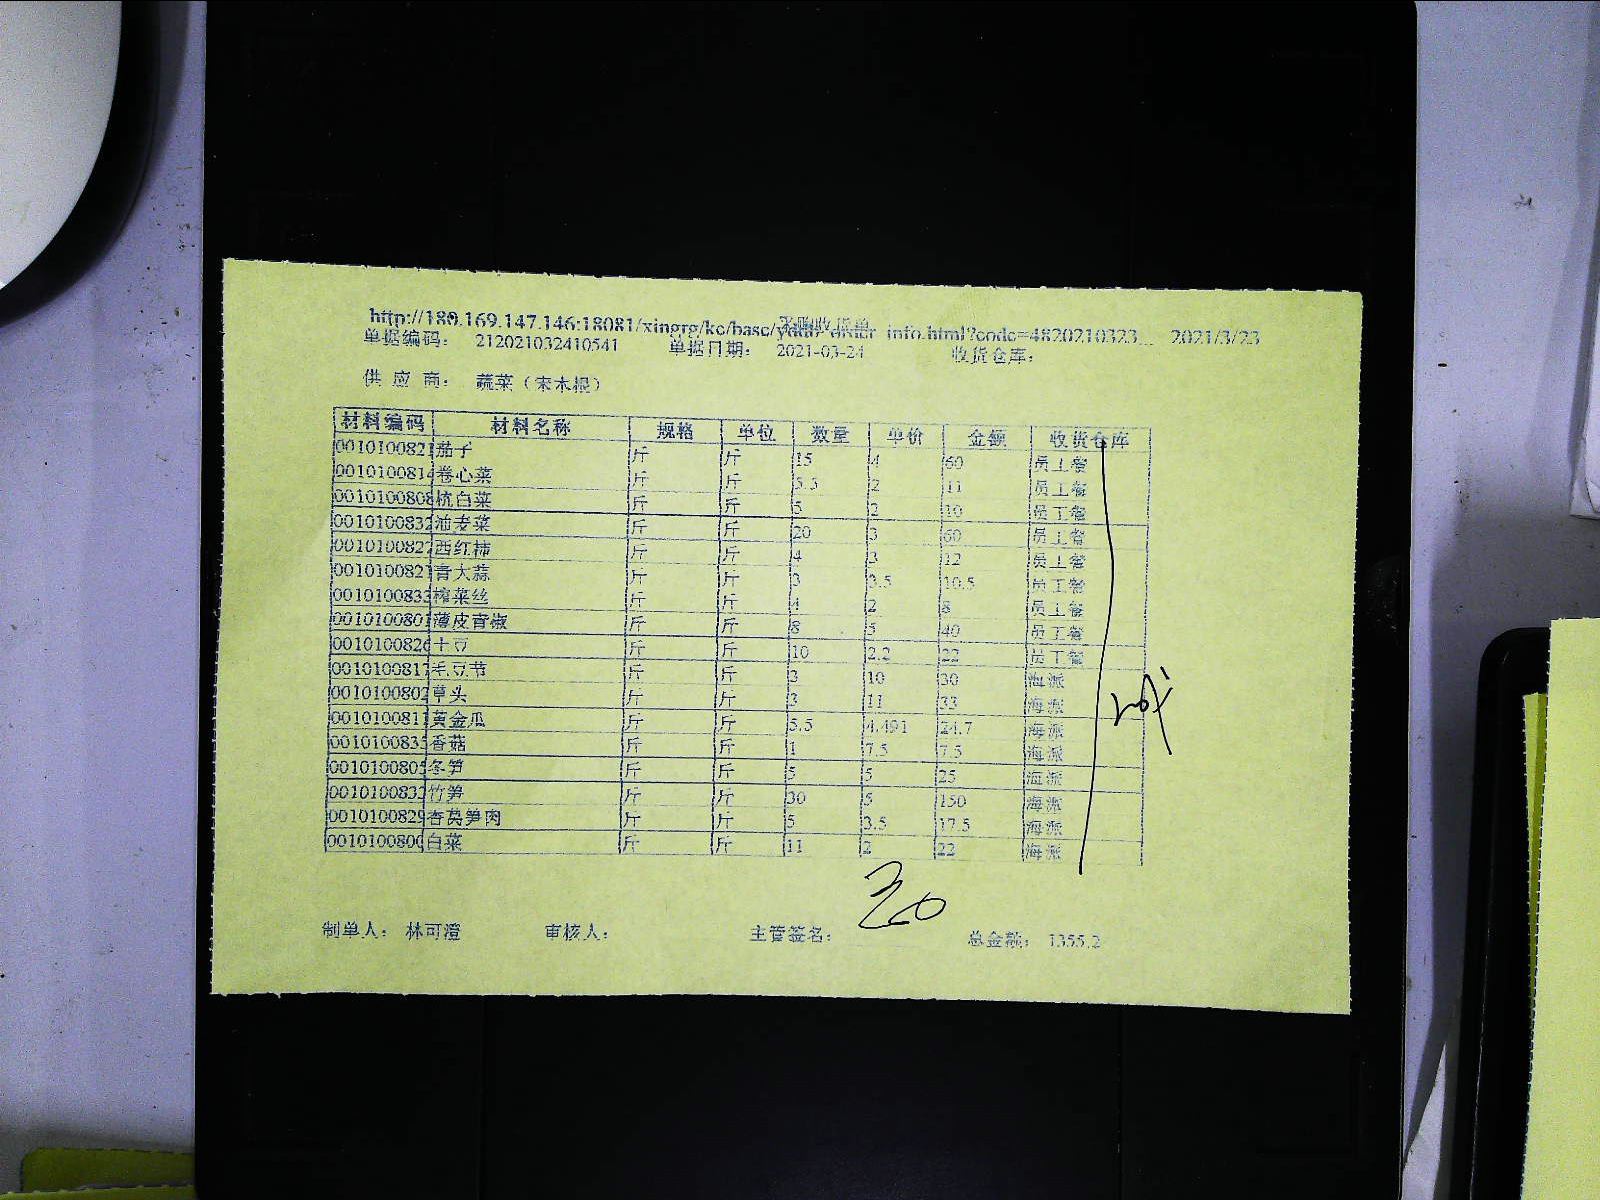 采购收货单
http://180.169.147.146:18081/xingrg/kc/basc/ info.html?code=4820210323... 2021/3/23
单据编码： 212021032410541 单据日期： 2021-03-24 收货仓库：
供 应 商： 蔬菜（宋木根）
材料编码 材料名称 规格 单位 数量 单价 金额 收货仓库
0010100821 茄子 斤 斤 15 4 60 员工餐
0010100814 卷心菜 斤 斤 5.5 2 11 员工餐
0010100808 杭白菜 斤 斤 5 2 10 员工餐
0010100832 油麦菜 斤 斤 20 3 60 员工餐
0010100822 西红柿 斤 斤 4 3 12 员工餐
0010100821 青大蒜 斤 斤 3 3.5 10.5 员工餐
0010100833 榨菜丝 斤 斤 4 2 8 员工餐
0010100801 薄皮青椒 斤 斤 8 5 40 员工餐
0010100826 土豆 斤 斤 10 2.2 22 员工餐
0010100817 毛豆节 斤 斤 3 10 30 海派
0010100802 草头 斤 斤 3 11 33 海派
0010100811 黄金瓜 斤 斤 5.5 4.491 24.7 海派
0010100835 香菇 斤 斤 1 7.5 7.5 海派
0010100805 冬笋 斤 斤 5 5 25 海派
0010100832 竹笋 斤 斤 30 5 150 海派
0010100829 杏莴笋肉 斤 斤 5 3.5 17.5 海派
0010100800 白菜 斤 斤 11 2 22 海派
制单人： 林可澄 审核人： 主管签名： 总金额： 1355.2